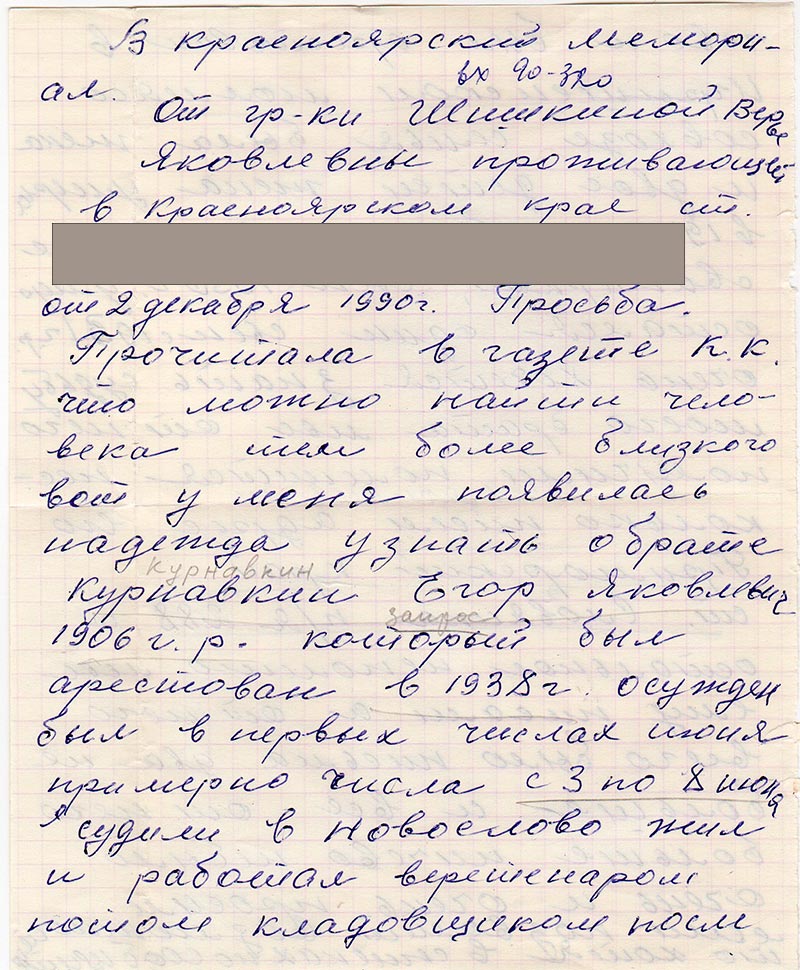 В красноярский мемори-
ал.
вх 90-320
От гр-ки Шишкиной Веры
Яковлевны проживающей
в Красноярском крае ст.
от 2 декабря 1990г. Просьба.
Прочитала в газете К.К.
что можно найти чело-
века тем более близкого
вот у меня появилась
надежда узнать о брате
Курнавкин
Курнавкин Егор Яковлевич
запрос
1906 г.р. который был
арестован в 1938г. осужден
был в первых числах июня
примерно числа с 3 по 8 июня
судили в Новослово жил
и работал
потом кладовщиком посм